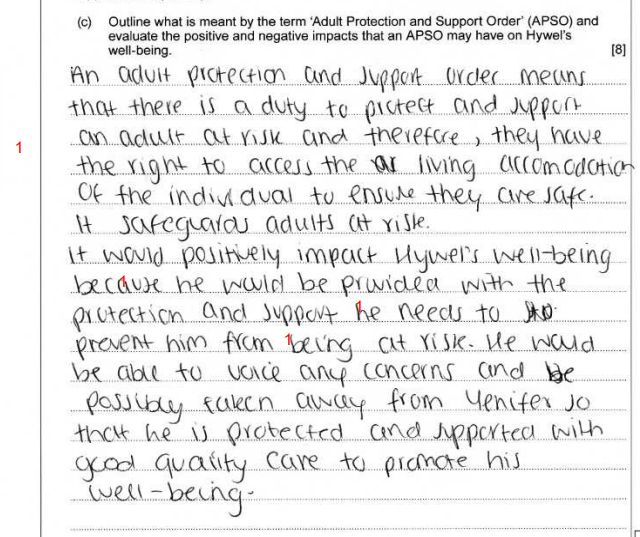 (c) Outline what is meant by the term 'Adult Protection and Support Order' (APSO) and
evaluate the positive and negative impacts that an APSO may have on Hywel's
well-being.
[8]
An adult protection and support order means
that there is a duty to protect and support
1
an adult at risk and therefore, they have
the right to access the living accomodation
of the individual to ensure they are safe.
It safeguards adults at risk.
It would positively impact Hywel's well-being
because he would be provided with the
protection and support he needs to
prevent him from 1 being at risk. He would
be able to voice any concerns and be
possibly taken away from Yenifer so
that he is protected and supported with
good quality care to promote his
well-being.